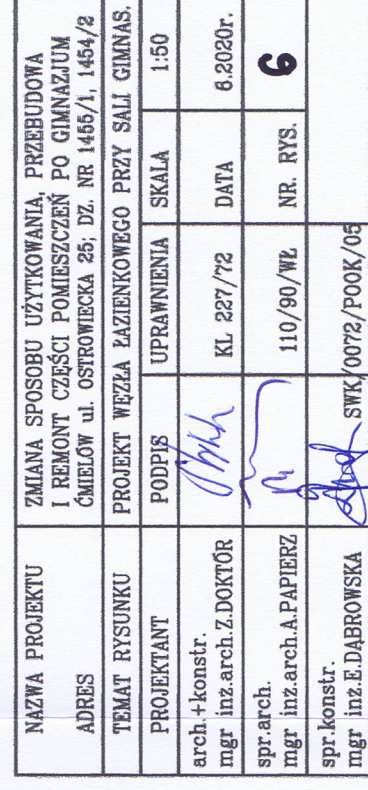 NAZWA PROJEKTU
ZMIANA SPOSOBU UŻYTKOWANIA, PRZEBUDOWA
I REMONT CZĘŚCI POMIESZCZEŃ PO GIMNAZJUM
ADRES
ĆMIELÓW ul. OSTROWIECKA 25; DZ. NR 1455/1, 1454/2
TEMAT RYSUNKU
PROJEKT WĘZŁA ŁAZIENKOWEGO PRZY SALI GIMNAS.
PROJEKTANT PODPIS UPRAWNIENIA SKALA 1:50
arch.+konstr.
mgr inż.arch.Z.DOKTÓR KL 227/72 DATA 6.2020r.
spr.arch.
mgr inż.arch.A.PAPIERZ 110/90/WŁ NR. RYS. 6
spr.konstr.
mgr inż.E.DĄBROWSKA SWK/0072/POOK/05